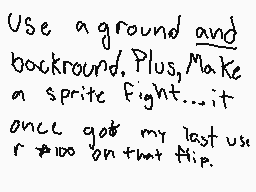 Use a ground and
backround. Plus, Make
a sprite fight...it
once got my last use
r #100 on that flip.